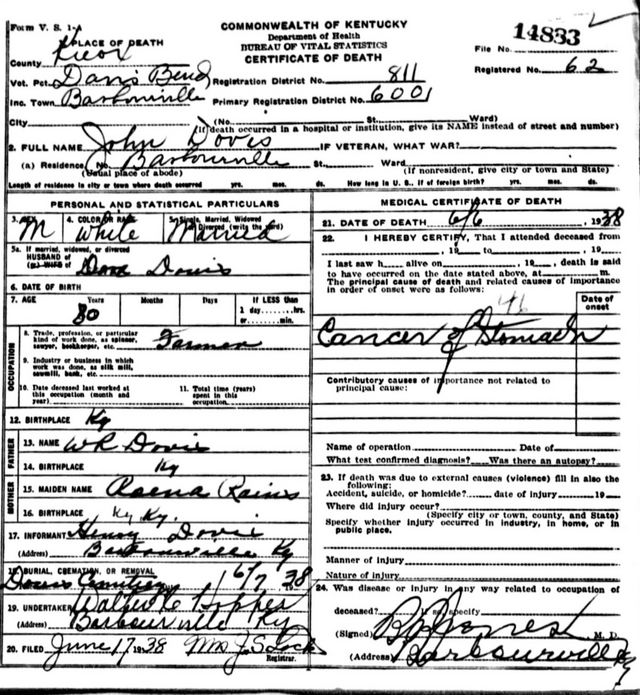 Form V. S. 1-A
COMMONWEALTH OF KENTUCKY
Department of Health
BUREAU OF VITAL STATISTICS
CERTIFICATE OF DEATH
File No. 14833
Registered No. 62
PLACE OF DEATH
County Knox
Vot. Pct. Davis Bend Registration District No. 811
Inc. Town Barbourville Primary Registration District No. 6001
City (No. St. Ward)
(If death occurred in a hospital or institution, give its NAME instead of street and number)
2. FULL NAME John Davis IF VETERAN, WHAT WAR?
(a) Residence No. Barbourville St. Ward
(Usual place of abode) (If nonresident, give city or town and State)
Length of residence in city or town where death occurred yrs. mos. ds. How long in U. S., if of foreign birth? yrs. mos. ds.
PERSONAL AND STATISTICAL PARTICULARS
3. SEX M 4. COLOR OR RACE White 5. Single, Married, Widowed or Divorced (write the word) Married
5a. If married, widowed, or divorced
HUSBAND of
(or) WIFE of Davis
6. DATE OF BIRTH
7. AGE Years 80 Months Days If LESS than
1 day hrs.
or min.
OCCUPATION
8. Trade, profession, or particular
kind of work done, as spinner,
sawyer, bookkeeper, etc. Farmer
9. Industry or business in which
work was done, as silk mill,
sawmill, bank, etc.
10. Date deceased last worked at
this occupation (month and
year)
11. Total time (years)
spent in this
occupation
12. BIRTHPLACE Ky
FATHER
13. NAME WR Davis
14. BIRTHPLACE Ky
MOTHER
15. MAIDEN NAME Raena Raines
16. BIRTHPLACE Ky Ky.
17. INFORMANT Henry Davis
(Address) Barbourville Ky
18. BURIAL, CREMATION, OR REMOVAL
Davis Cemetery 6/7 38
19. UNDERTAKER Walter C Hopper
(Address) Barbourville Ky
20. FILED June 17 1938 Mrs J. S. Lock
Registrar.
MEDICAL CERTIFICATE OF DEATH
21. DATE OF DEATH 6/6, 1938
22. I HEREBY CERTIFY, That I attended deceased from
, 19 to , 19
I last saw h alive on , 19 , death is said
to have occurred on the date stated above, at m.
The principal cause of death and related causes of importance
in order of onset were as follows:
Date of
onset
46
Cancer of Stomach
Contributory causes of importance not related to
principal cause:
Name of operation Date of
What test confirmed diagnosis? Was there an autopsy?
23. If death was due to external causes (violence) fill in also the
following:
Accident, suicide, or homicide? date of injury 19
Where did injury occur?
(Specify city or town, county, and State)
Specify whether injury occurred in industry, in home, or in
public place.
Manner of injury
Nature of injury
24. Was disease or injury in any way related to occupation of
deceased? If so, specify
(Signed) Jones M. D.
(Address) Barbourville Ky